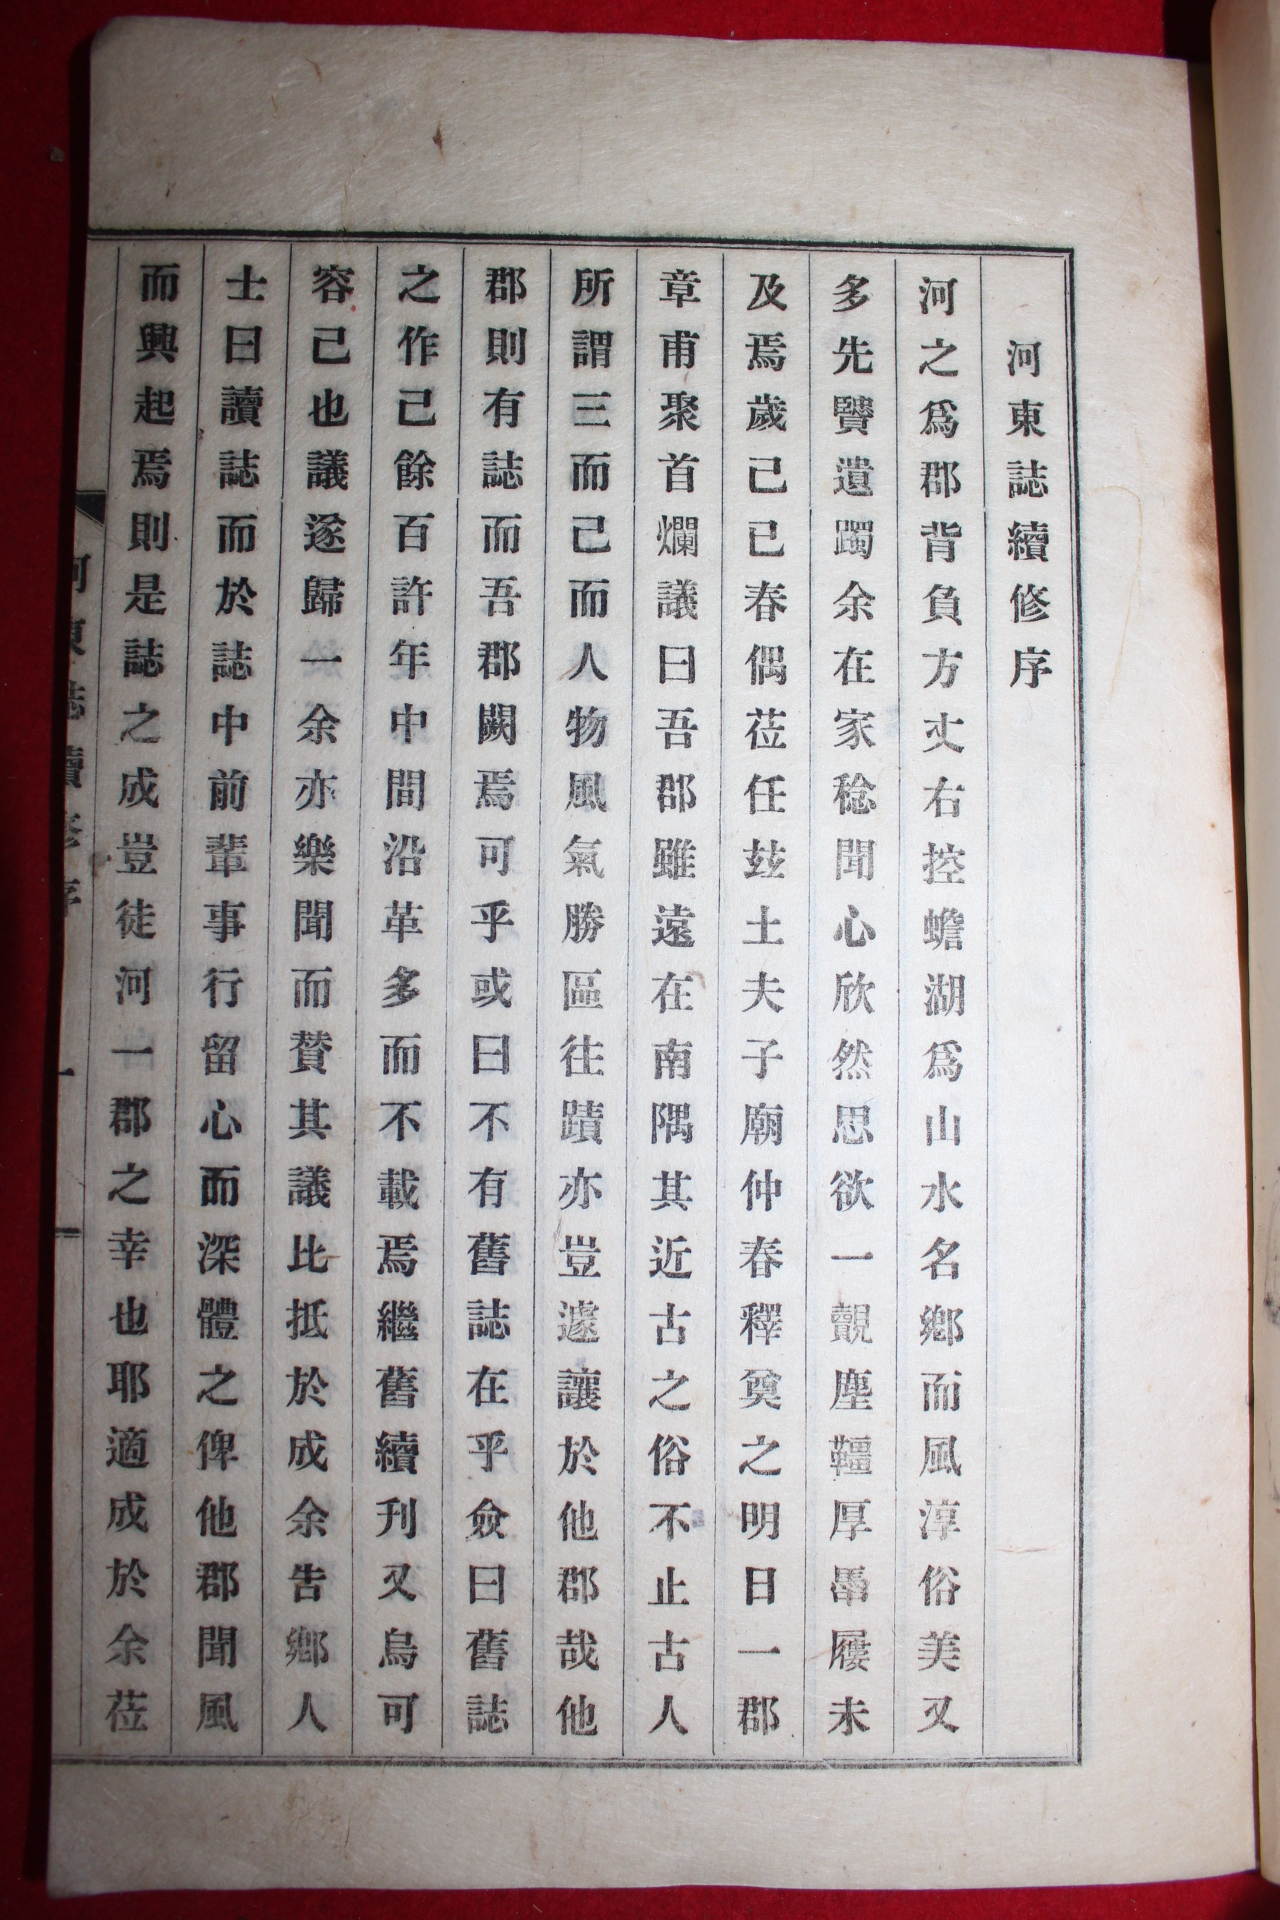 河東誌續修序
河之爲郡背負方丈右控蟾湖爲山水名鄕而風淳俗美又
多先賢遺躅余在家稔聞心欣然思欲一覿塵韁厚絆屨未
及焉歲己巳春偶莅任玆土夫子廟仲春釋奠之明日一郡
章甫聚首爛議曰吾郡雖遠在南隅其近古之俗不止古人
所謂三而己而人物風氣勝區往蹟亦豈遽讓於他郡哉他
郡則有誌而吾郡闕焉可乎或曰不有舊誌在乎僉曰舊誌
之作己餘百許年中間沿革多而不載焉繼舊續刊又烏可
容己也議遂歸一余亦樂聞而賛其議比抵於成余告鄕人
士曰讀誌而於誌中前輩事行留心而深體之俾他郡聞風
而興起焉則是誌之成豈徒河一郡之幸也耶適成於余莅
河東誌續修序 一